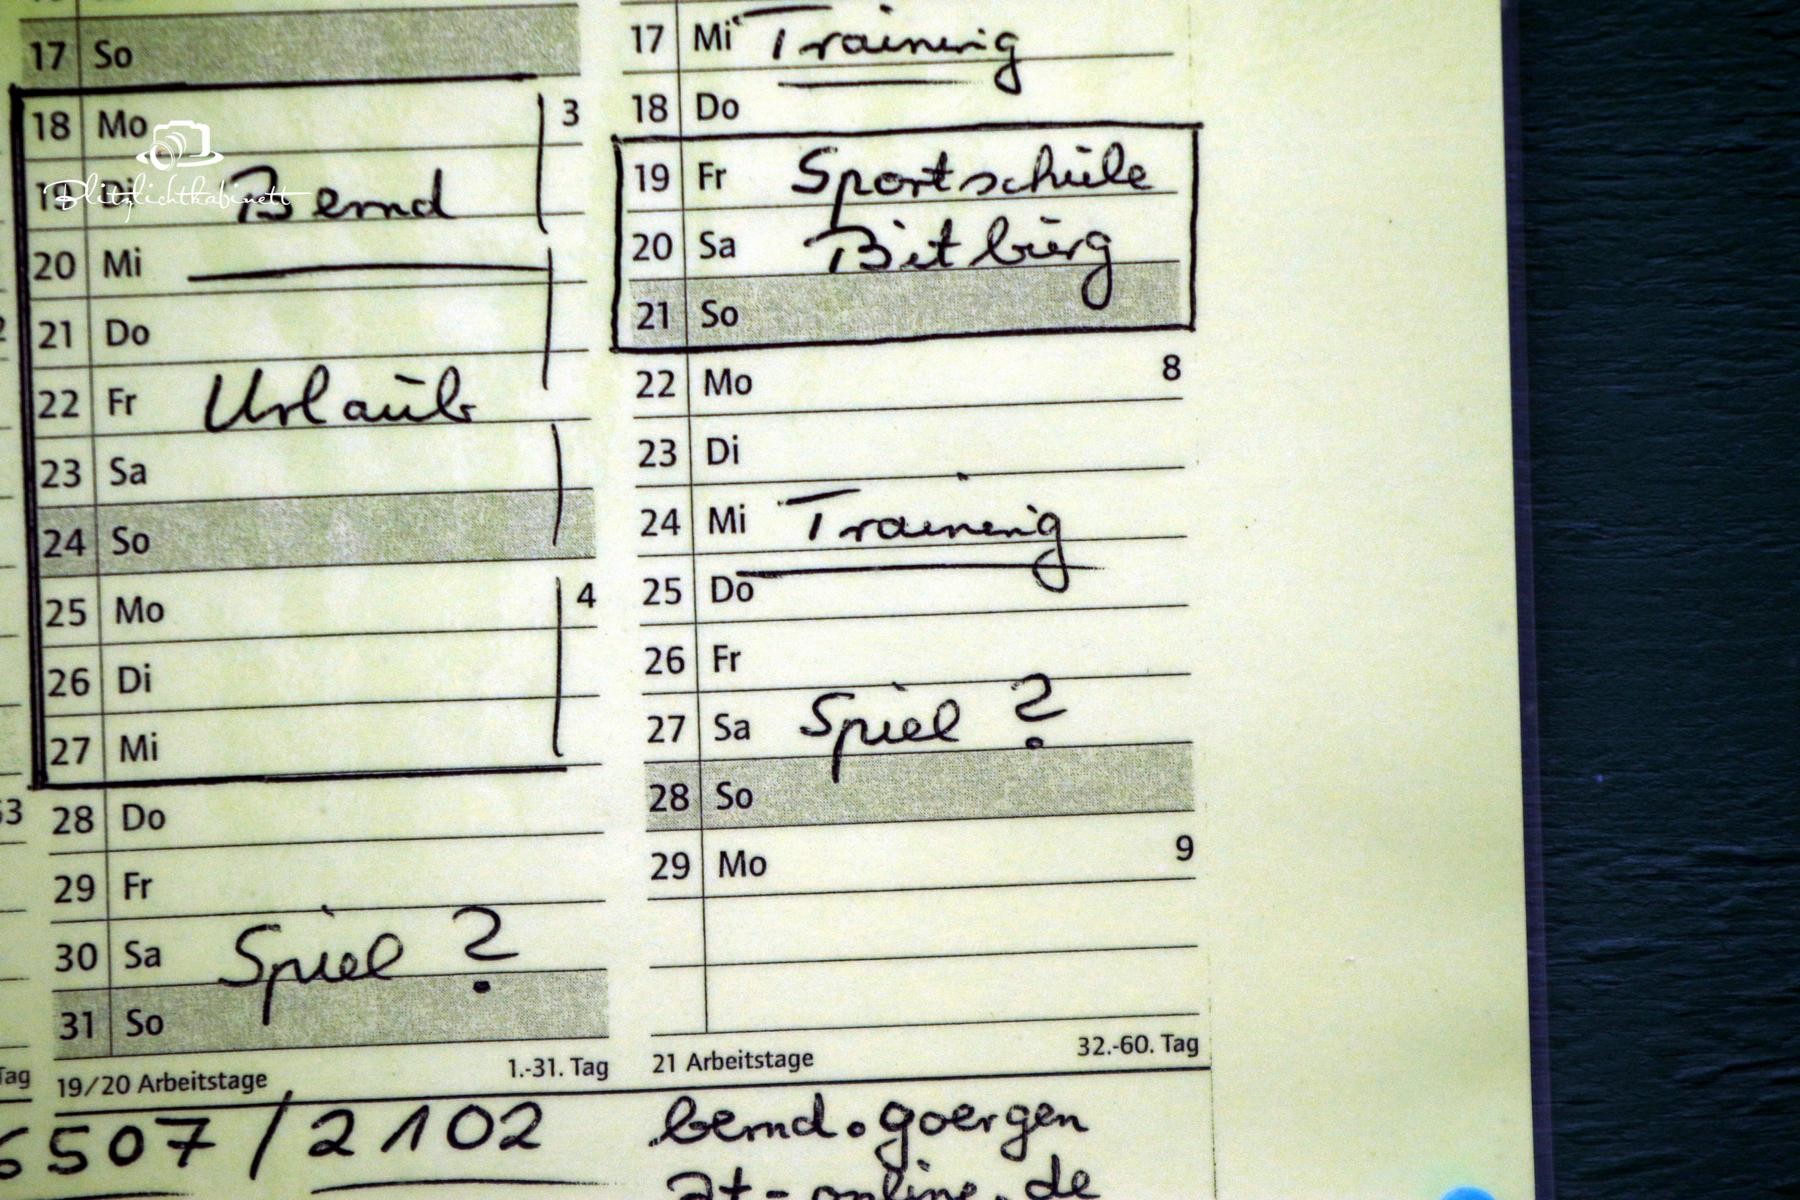 17 So
18 Mo 3
19 Di Bernd
20 Mi
21 Do
22 Fr Urlaub
23 Sa
24 So
25 Mo 4
26 Di
27 Mi
28 Do
29 Fr
30 Sa Spiel ?
31 So
19/20 Arbeitstage 1.-31. Tag
17 Mi Training
18 Do
19 Fr Sportschule
20 Sa Bitburg
21 So
22 Mo 8
23 Di
24 Mi Training
25 Do
26 Fr
27 Sa Spiel ?
28 So
29 Mo 9
21 Arbeitstage 32.-60. Tag
6507/2102
bernd.goergen
at-online.de
53
Tag
Blitzlichtkabinett